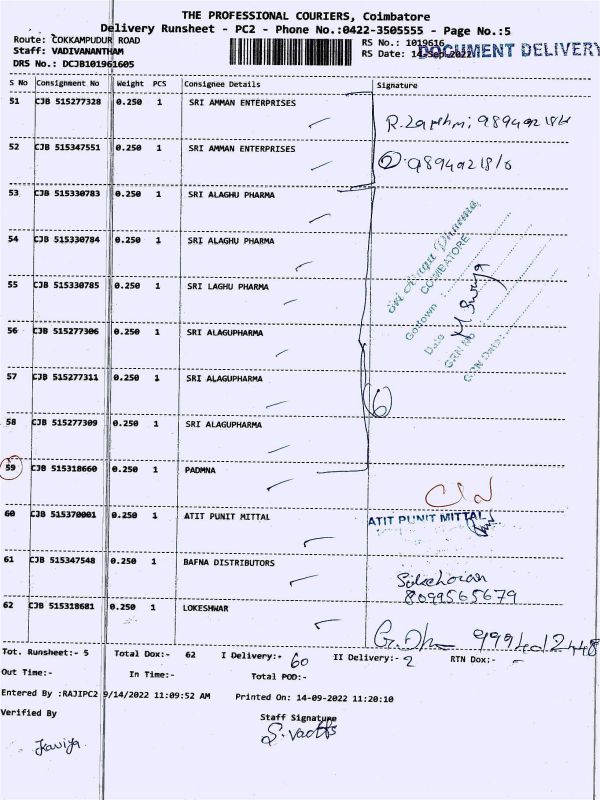 THE PROFESSIONAL COURIERS, Coimbatore
Delivery Runsheet - PC2 - Phone No.:0422-3505555 - Page No.:5
Route: COKKAMPUDUR ROAD
RS No.: 1019616
Staff: VADIVANANTHAM
RS Date: 14-Sep-2022
DOCUMENT DELIVERY
DRS No.: DCJB101961605
S No Consignment No Weight PCS Consignee Details Signature
51 CJB 515277328 0.250 1 SRI AMMAN ENTERPRISES
52 CJB 515347551 0.250 1 SRI AMMAN ENTERPRISES
53 CJB 515330783 0.250 1 SRI ALAGHU PHARMA
54 CJB 515330784 0.250 1 SRI ALAGHU PHARMA
55 CJB 515330785 0.250 1 SRI LAGHU PHARMA
Sri Alagu Pharma,
COIMBATORE
Godown :
Date :
GRN No :
GRN Date :
M. Surya
56 CJB 515277306 0.250 1 SRI ALAGUPHARMA
57 CJB 515277311 0.250 1 SRI ALAGUPHARMA
6
58 CJB 515277309 0.250 1 SRI ALAGUPHARMA
59 CJB 515318660 0.250 1 PADMNA
60 CJB 515370001 0.250 1 ATIT PUNIT MITTAL ATIT PUNIT MITTAL
61 CJB 515347548 0.250 1 BAFNA DISTRIBUTORS
8099565679
62 CJB 515318681 0.250 1 LOKESHWAR
Tot. Runsheet:- 5 Total Dox:- 62 I Delivery:- 60 II Delivery:- 2 RTN Dox:- -
Out Time:- In Time:- Total POD:-
Entered By :RAJIPC2 9/14/2022 11:09:52 AM Printed On: 14-09-2022 11:20:10
Verified By Staff Signature
Kaviya